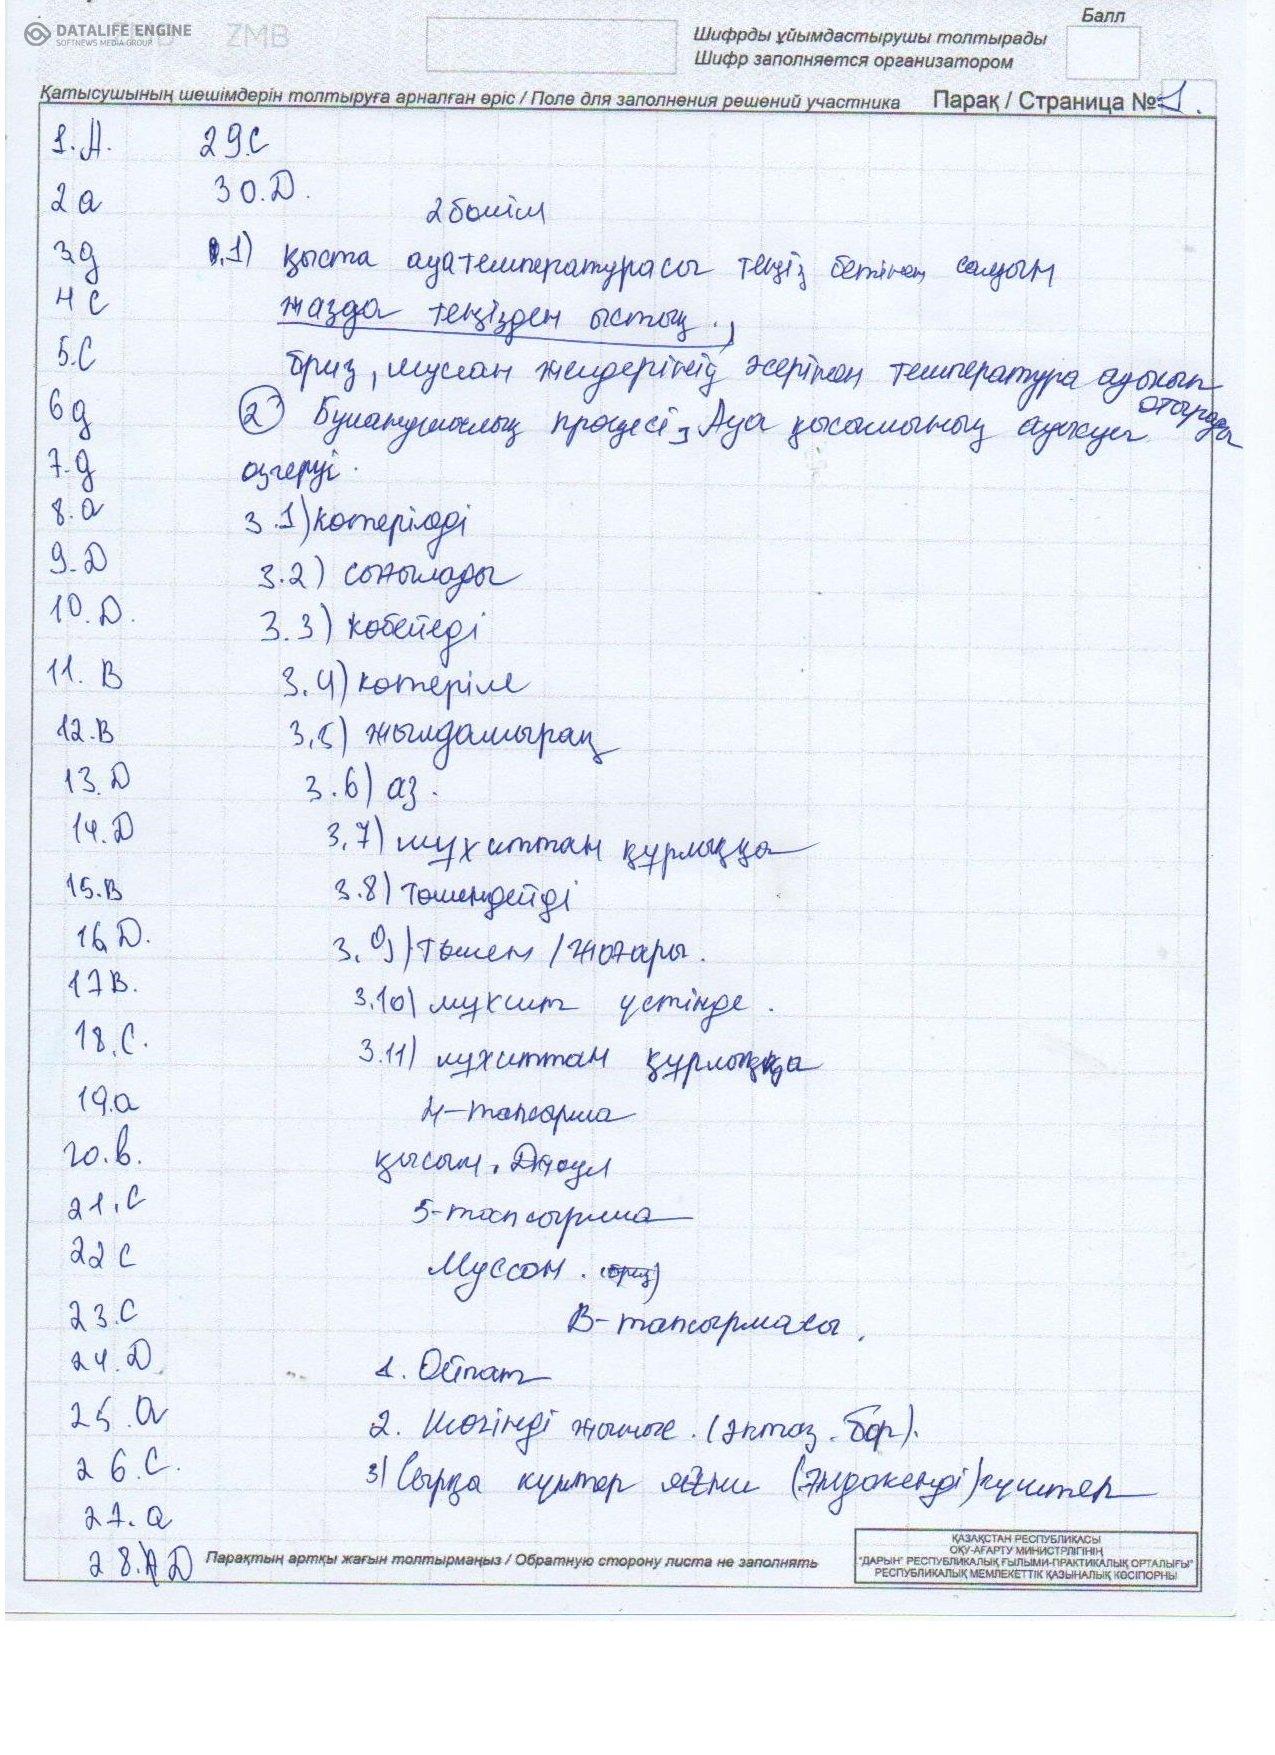 DATALIFE ENGINE
SOFTNEWS MEDIA GROUP
ZMB
Балл
Шифрды ұйымдастырушы толтырады
Шифр заполняется организатором
Қатысушының шешімдерін толтыруға арналған өріс / Поле для заполнения решений участника Парақ / Страница № 1.
1. А. 29.С
2 а 30. Д.
2 бөлім
3. д 1) қыста ауа температурасы теңіз бетінен салқын
4 С жазда теңізден ыстық.,
5. С бриз, муссан желдерінің әсерінен температура ауысып отырады
6 д 2 Буланушылық процесі, Ауа қысымының ауысуы
7. д өзгеруі.
8. а 3.1) көтеріледі
9. Д 3.2) соғылады
10. Д. 3.3) көбейеді
11. В 3.4) көтеріле
12. В 3.5) жылдамырақ
13. Д 3.6) аз.
14. Д 3.7) мұхиттан құрлыққа
15. В 3.8) төмендейді
16 Д. 3.9) төмен / жоғары.
17 В. 3.10) мұхит үстінде.
18. С. 3.11) мұхиттан құрлыққа
19. а 4-тапсырма
20. в. қысым. Дауыл
21. С 5-тапсырма
22 С Муссон. (бриз)
23. С В-тапсырмасы.
24. Д. 1. Ойпат
25. а 2. Шөгінді жыныс. (әктас. бор).
26. С. 3) Сыртқы күштер яғни күштер
27. а
28. Д
Парақтың артқы жағын толтырмаңыз / Обратную сторону листа не заполнять
ҚАЗАҚСТАН РЕСПУБЛИКАСЫ
ОҚУ-АҒАРТУ МИНИСТРЛІГІНІҢ
"ДАРЫН" РЕСПУБЛИКАЛЫҚ ҒЫЛЫМИ-ПРАКТИКАЛЫҚ ОРТАЛЫҒЫ"
РЕСПУБЛИКАЛЫҚ МЕМЛЕКЕТТІК ҚАЗЫНАЛЫҚ КӘСІПОРНЫ